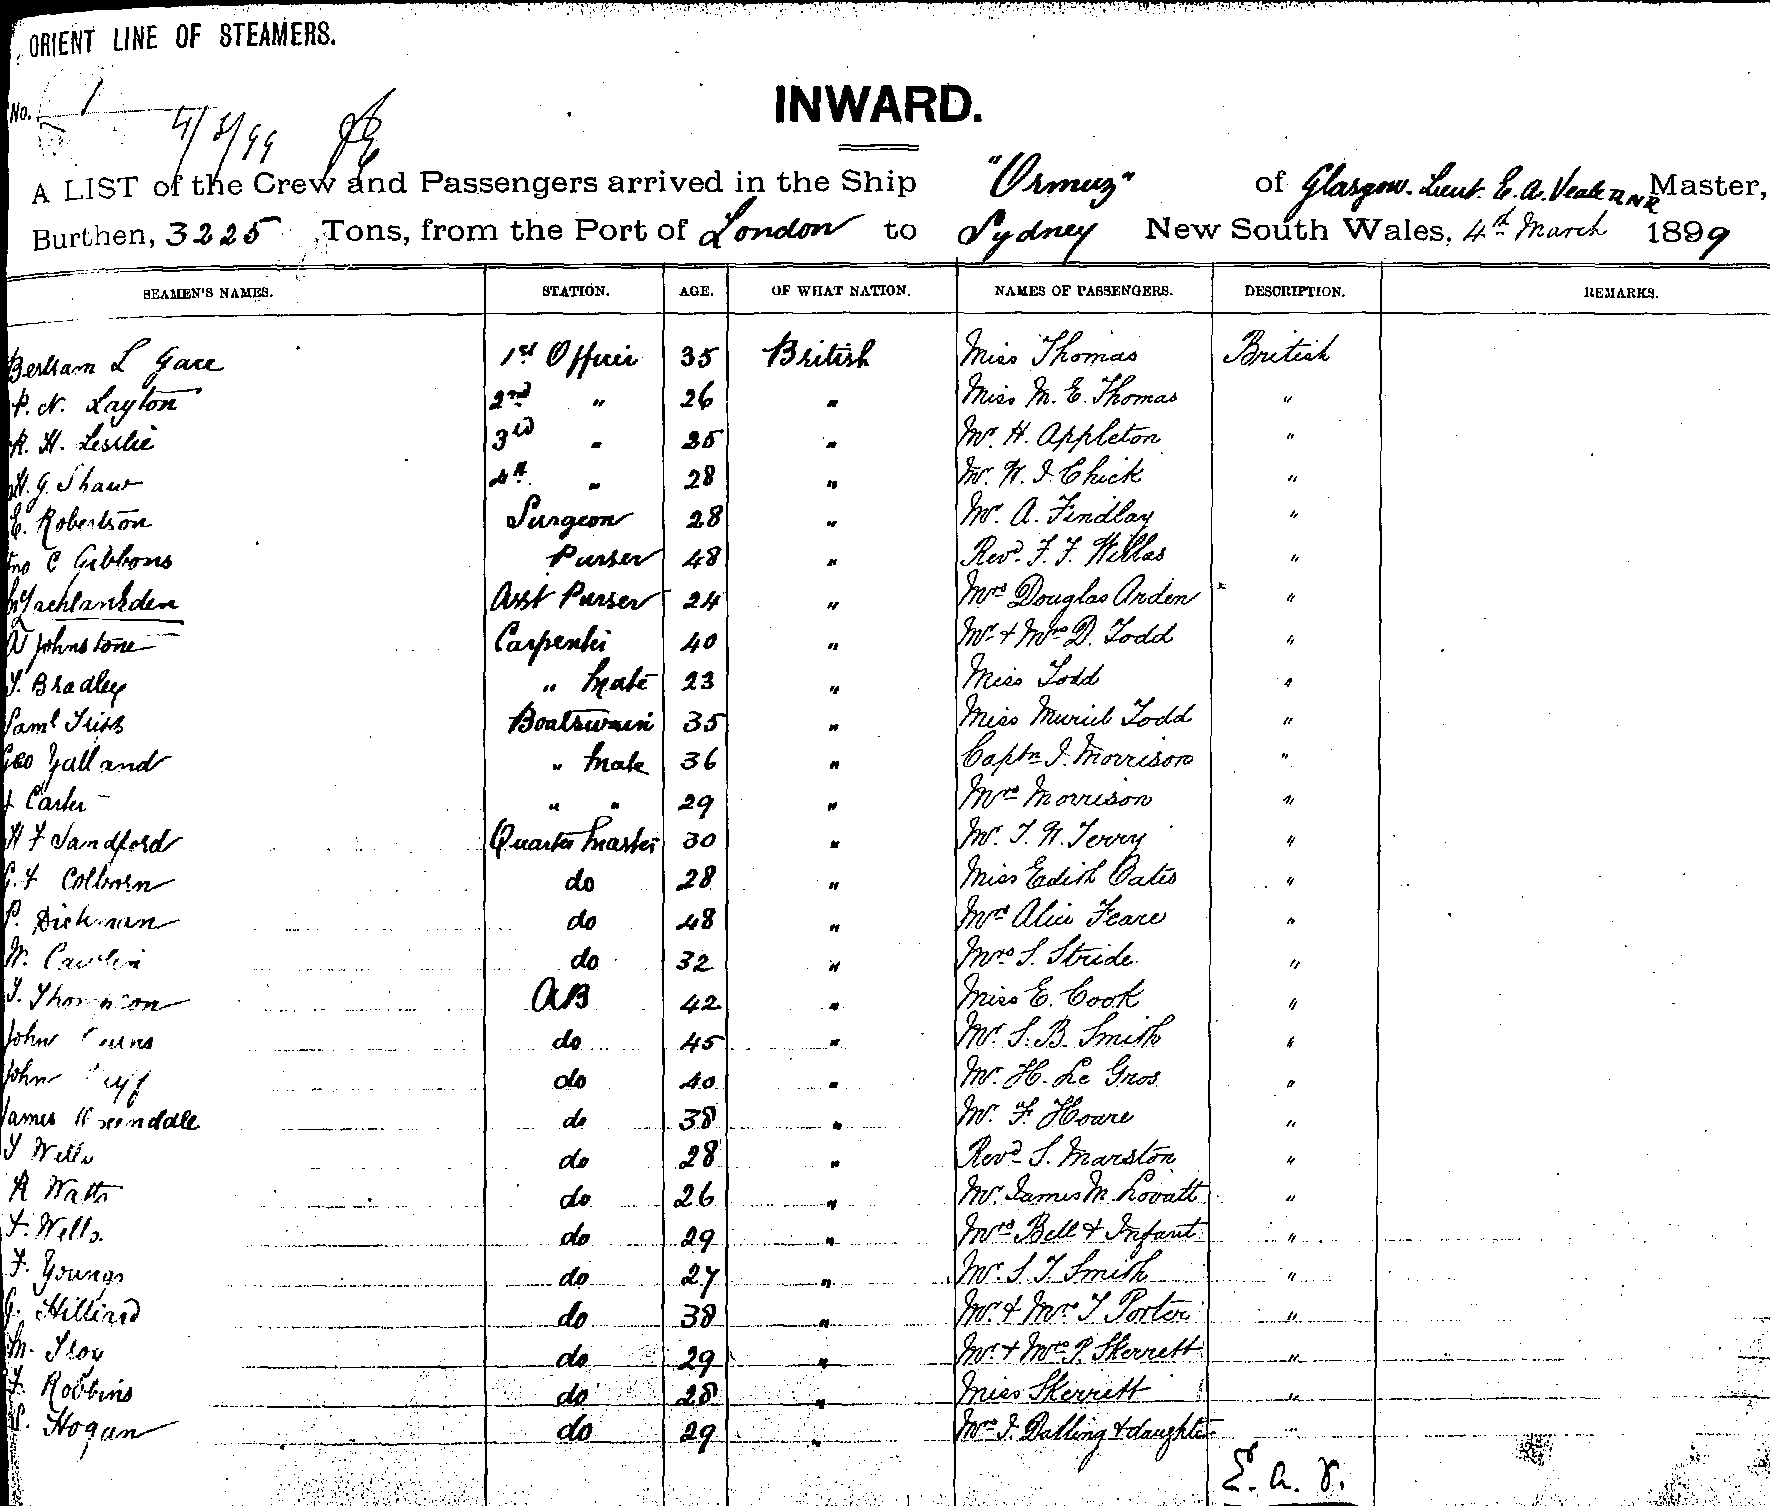 ORIENT LINE OF STEAMERS.
No. 1
4/3/99
INWARD.
A LIST of the Crew and Passengers arrived in the Ship "Ormuz" of Glasgow. Lieut. E. A. Veale R.N.R Master,
Burthen, 3225 Tons, from the Port of London to Sydney New South Wales, 4th March 1899
SEAMEN'S NAMES. STATION. AGE. OF WHAT NATION. NAMES OF PASSENGERS. DESCRIPTION. REMARKS.
Bertram L Gace 1st Officer 35 British Miss Thomas British
P. N. Layton 2nd " 26 " Miss M. E. Thomas "
R. H. Leslie 3rd " 25 " Mr. H. Appleton "
H. G. Shaw 4th " 28 " Mr. W. J. Chick "
E. Robertson Surgeon 28 " Mr. A. Findlay "
Jno C Gibbons Purser 48 " Revd. F. F. "
Asst Purser 24 " Mrs Douglas Arden "
Johnstone Carpenter 40 " Mr. + Mrs D. Todd "
Bradley " Mate 23 " Miss Todd "
Saml Boatswain 35 " Miss Muriel Todd "
Geo Yalland " Mate 36 " Captn J. Morrison "
Carter " " 29 " Mrs Morrison "
H F Sandford Quarter Master 30 " Mr. T. W. Terry "
G. F Colborn do 28 " Miss Edith Oates "
P. Dickman do 48 " Mrs Alice Feare "
W. do 32 " Mrs S. Stride "
T. AB 42 " Miss E. Cook "
John do 45 " Mr. S. B. Smith "
John do 40 " Mr. H. Le Gros "
James do 38 " Mr. F. Hoare "
Wells do 28 " Revd. S. Marston "
R Watts do 26 " Mr. James M. Lovatt "
F. Wells do 29 " Mrs Bell + Infant "
F. Youngs do 27 " Mr. S. T. Smith "
G. Hilliard do 38 " Mr. + Mrs T Porter "
M. Troy do 29 " Mr. + Mrs P. Skerrett "
F. Robbins do 28 " Miss Skerrett "
Hogan do 29 " Mrs J. Dalling + daughter "
E. A. V.